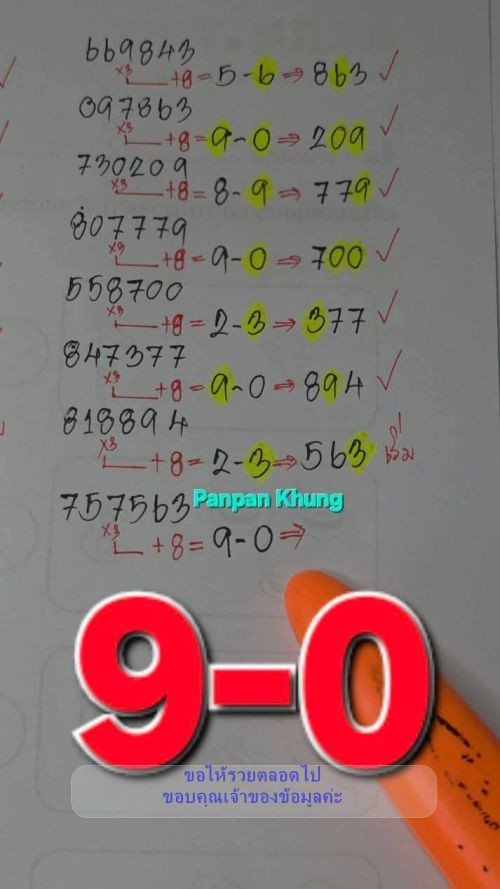 669843
x3 +8 = 5-6 ⇒ 863 ✓
097863
x3 +8 = 9-0 ⇒ 209 ✓
730209
x3 +8 = 8-9 ⇒ 779 ✓
807779
x3 +8 = 9-0 ⇒ 700 ✓
558700
x3 +8 = 2-3 ⇒ 377 ✓
847377
x3 +8 = 9-0 ⇒ 894 ✓
818894
x3 +8 = 2-3 ⇒ 563
757563
Panpan Khung
x3 +8 = 9-0 ⇒
9-0
ขอให้รวยตลอดไป
ขอบคุณเจ้าของข้อมูลค่ะ